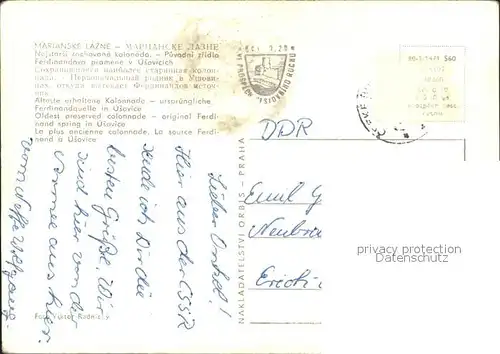 MARIÁNSKÉ LÁZNĚ – МАРИАНСКЕ ЛАЗНЕ
Nejstarší zachovaná kolonáda. – Původní zřídlo
Ferdinandova pramene v Úšovicích
Сохранившаяся наиболее старинная колон-
нада. – Первоначальный родник в Ушови-
цах, откуда вытекал Фердинандов источ-
ник
Älteste erhaltene Kolonnade – ursprüngliche
Ferdinandquelle in Úšovice
Oldest preserved colonnade – original Ferdi-
nand spring in Úšovice
La plus ancienne colonnade. La source Ferdi-
nand à Úšovice
Kčs 1,20
NAKLADATELSTVÍ ORBIS – PRAHA
DDR
Emil G
Neubra
Erich
Lieber Onkel!
Hier aus der ČSSR
sende ich Dir die
besten Grüße. Wir
sind hier von der
Armee aus hier.
Vom Neffe Wolfgang.
privacy protection
Datenschutz